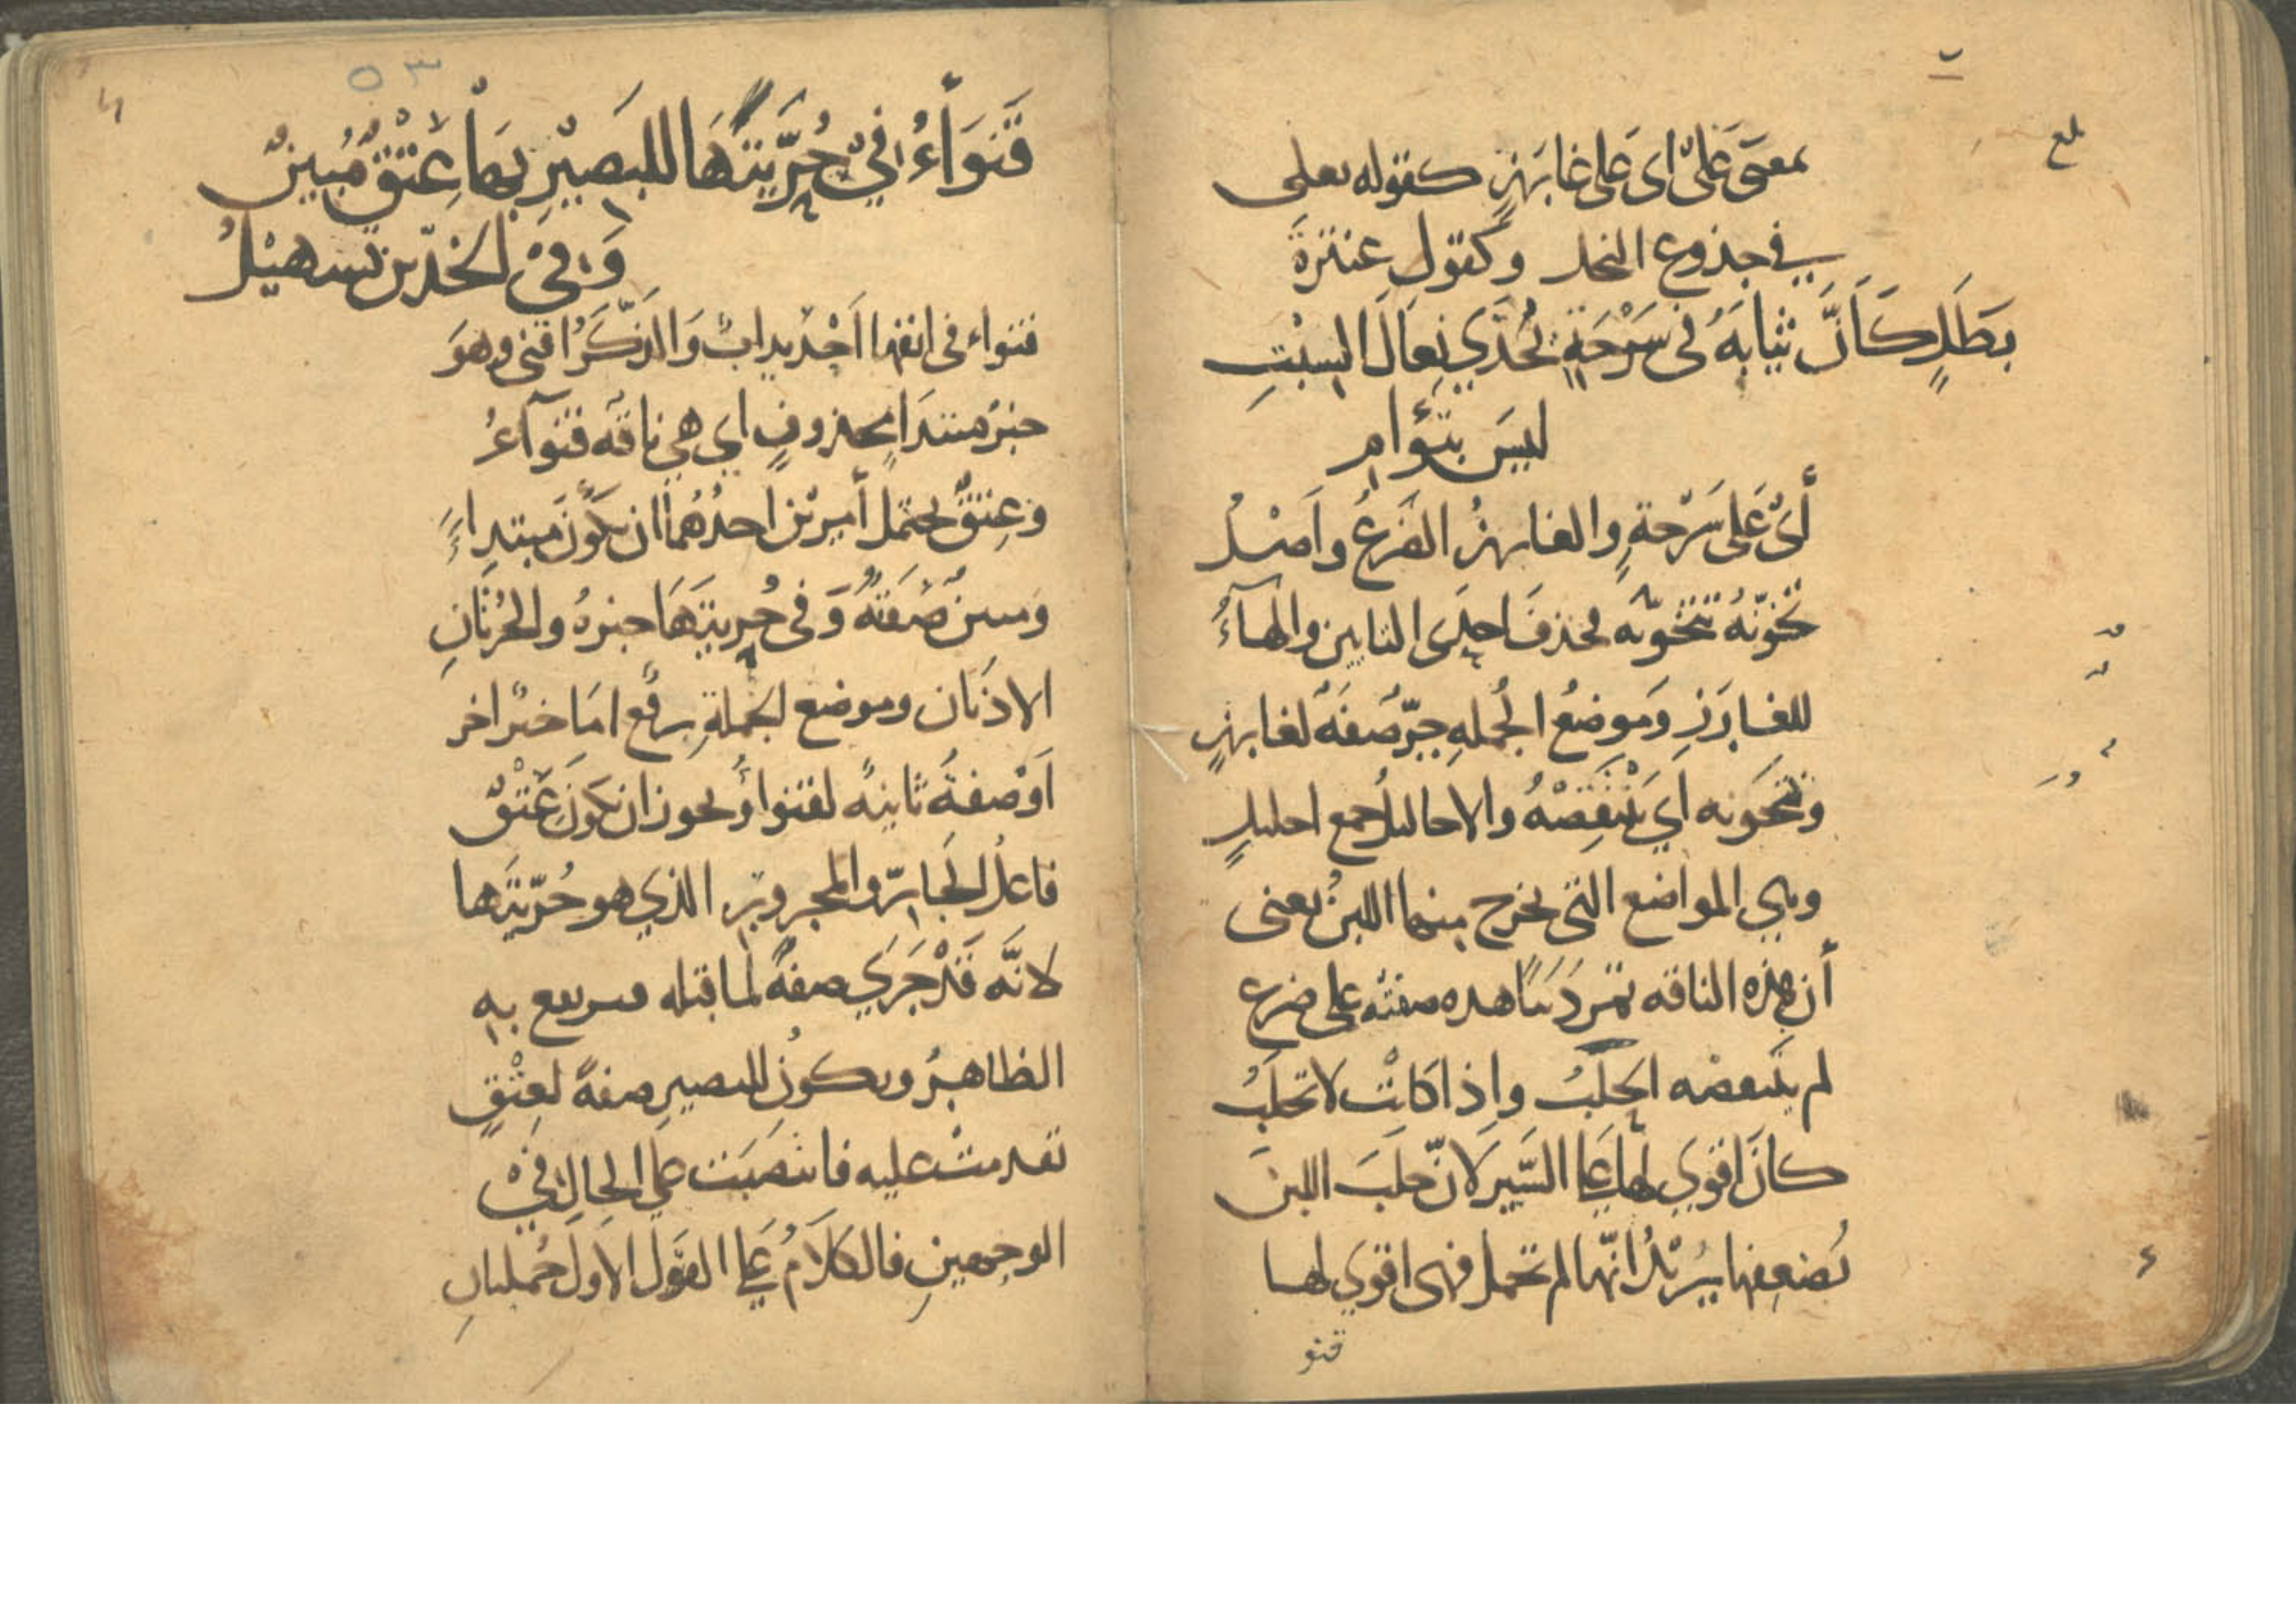 بلغ
بمعنى على اى على غارز كقوله تعلى
في جذوع النخل وكقول عنترة
بطل كأن ثيابه فى سرحة يحذي نعال السبت
ليس بتؤام
أى على سرحة والغارز الضرع واصل
تخونه تتخونه فحذف احدى التايين والهاء
للغارز وموضع الجمله جر صفة لغارز
وتخونه اي تنقصه والاحاليل جمع احليل
وهي المواضع التى يخرج منها اللبن يعنى
أن هذه الناقه تمر ذنبا هذه صفته على ضرع
لم ينقصه الحلب واذا كانت لا تحلب
كان اقوي لها على السير لان حلب اللبن
يضعفها يريد انها لم تحمل فهى اقوي لها
قنو
٥٣
قنواء في حريتها للبصير بها عتق مبين
وفي الخدين تسهيل
قنواء فى انفها احديداب والذكر اقنى وهو
خبر مبتدا محذوف اي هي ناقه قنوآء
وعتق يحتمل أمرين احدهما ان يكون مبتداء
ومبين صفته وفى حريتها خبره والحرتان
الاذنان وموضع الجملة رفع اما خبر اخر
او صفة ثانية لقنواء ويجوز ان يكون عتق
فاعل الجار والمجرور الذي هو حريتها
لانه قد جري صفة لما قبله فيرتفع به
الظاهر ويكون للبصير صفة لعتق
تقدمت عليه فانتصبت على الحال في
الوجهين فالكلام على القول الاول جملتان